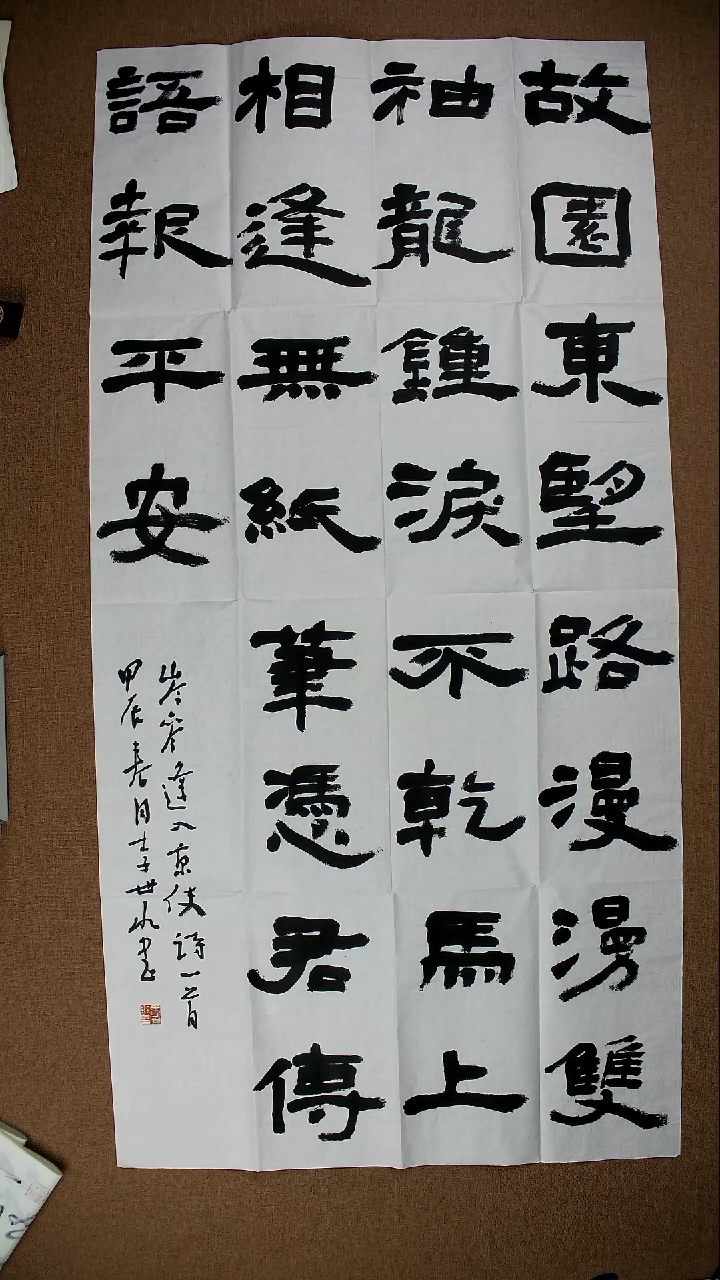 故園東望路漫漫雙
袖龍鍾淚不乾馬上
相逢無紙筆憑君傳
語報平安
岑參逢入京使詩一首
甲辰春月李世水書